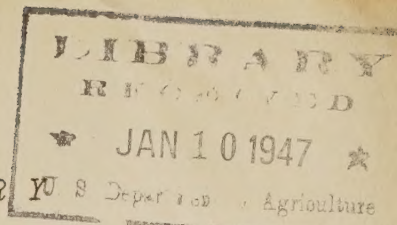 LIBRARY
RECEIVED
★ JAN 10 1947 ★
U S Department Agriculture